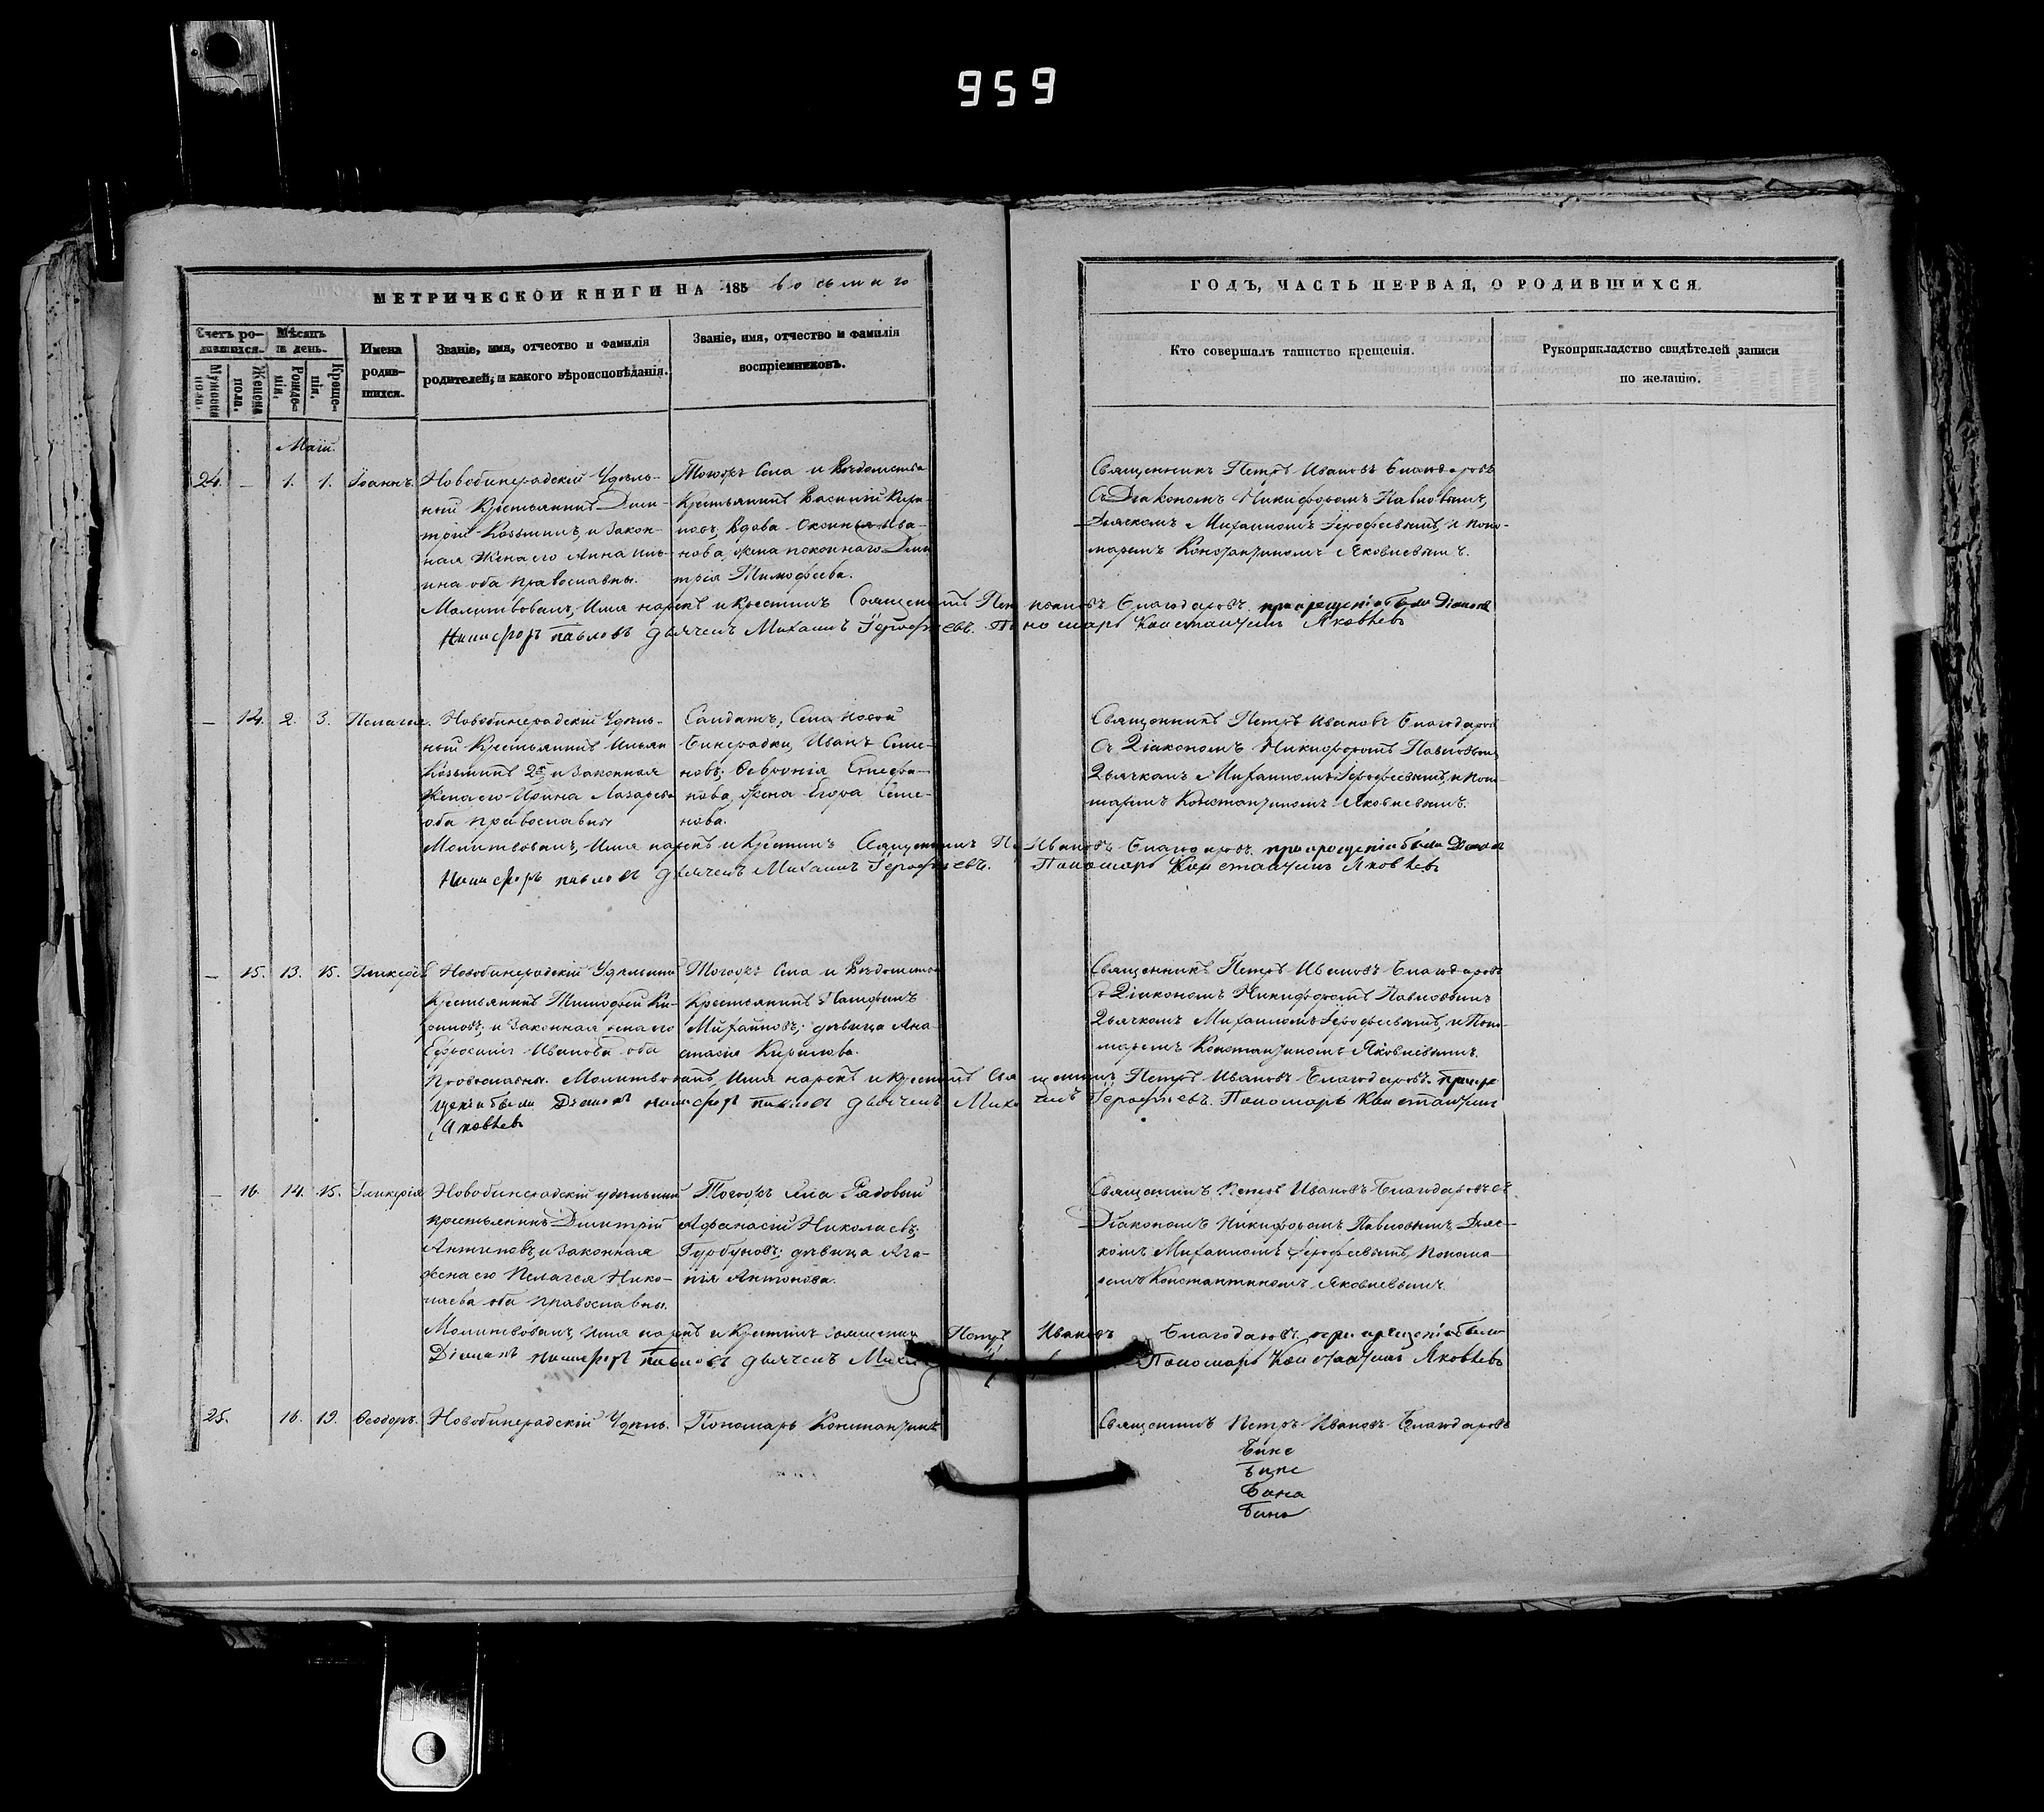 959
МЕТРИЧЕСКОЙ КНИГИ НА 185 восьмаго
Счетъ родившихся.
Мѣсяцъ и день.
Мужеска пола.
Женска пола.
Рожденія.
Крещенія.
Имена родившихся.
Званіе, имя, отчество и фамилія
родителей, и какого вѣроисповѣданія.
Званіе, имя, отчество и фамилія
воспріемниковъ.
ГОДЪ, ЧАСТЬ ПЕРВАЯ, О РОДИВШИХСЯ.
Кто совершалъ таинство крещенія.
Рукоприкладство свидѣтелей записи
по желанію.
Маій.
24. — 1. 1. Іоаннъ.
Новобинерадскій Удѣль-
ный Крестьянинъ Дми-
трій Козьминъ, и закон-
ная жена его Анна
оба православны.
Тогожъ Села и Вѣдомства
Крестьянинъ Василій
Вдова
нова, жена покойнаго Дми
трія Тимофеева.
Священникъ Петръ Ивановъ Благодаровъ
Съ Діакономъ Никифоромъ Павловымъ,
Дьячкомъ Михаиломъ Іерофеевымъ, и поно-
маремъ Константиномъ Яковлевымъ.
Молитвовалъ, Имя нарекъ и Крестилъ Священникъ Петръ Ивановъ Благодаровъ. при крещеніи были Діаконъ
Никифоръ Павловъ дьячекъ Михаилъ Іерофеевъ. Пономарь Константинъ Яковлевъ
— 14. 2. 3. Пелагея.
Новобинерадскій Удѣль-
ный Крестьянинъ
Козьминъ 2й и законная
жена его Ирина Лазарева
оба православны
Солдатъ, Села Новой
Бинерадки, Иванъ Семе-
новъ; Февронія Стефа-
нова, жена Егора Семе-
нова.
Священникъ Петръ Ивановъ Благодаровъ
Съ Діакономъ Никифоромъ Павловымъ
Дьячкомъ Михаиломъ Іерофеевымъ, и поно-
маремъ Константиномъ Яковлевымъ.
Молитвовалъ, Имя нарекъ и Крестилъ Священникъ Ивановъ Благодаровъ. при крещеніи были Діаконъ
Никифоръ Павловъ дьячекъ Михаилъ Іерофеевъ. Пономарь Константинъ Яковлевъ
— 15. 13. 15. Гликерія
Новобинерадскій Удѣльный
Крестьянинъ Тимофей Ки-
риловъ; и законная жена его
Ефросинія Иванова оба
православны.
Тогожъ Села и Вѣдомства
Крестьянинъ Памфилъ
Михайловъ; дѣвица Ана-
стасія Кирилова.
Священникъ Петръ Ивановъ Благодаровъ
Съ Діакономъ Никифоромъ Павловымъ
Дьячкомъ Михаиломъ Іерофеевымъ, и Поно-
маремъ Константиномъ Яковлевымъ.
Молитвовалъ, Имя нарекъ и крестилъ Священникъ Петръ Ивановъ Благодаровъ. при кре
щеніи были Діаконъ Никифоръ Павловъ дьячекъ Михаилъ Іерофеевъ. Пономарь Константинъ
Яковлевъ
— 16. 14. 15. Гликерія
Новобинерадскій удѣльный
крестьянинъ Димитрій
Антиповъ, и законная
жена его Пелагея Нико-
лаева оба православны.
Тогожъ села Рядовый
Афанасій Николаевъ
Гурбуновъ; дѣвица Ага-
пія Антонова.
Священникъ Петръ Ивановъ Благодаровъ съ
Діакономъ Никифоромъ Павловымъ, Дьяч-
комъ Михаиломъ Іерофеевымъ, Понома-
ремъ Константиномъ Яковлевымъ.
Молитвовалъ, имя нарекъ и Крестилъ священникъ Петръ Ивановъ Благодаровъ. при крещеніи были
Діаконъ Никифоръ Павловъ дьячекъ Пономарь Константинъ Яковлевъ
25. 16. 19. Ѳеодоръ.
Новобинерадскій Удѣль.
Пономарь Константинъ
Священникъ Петръ Ивановъ Благодаровъ